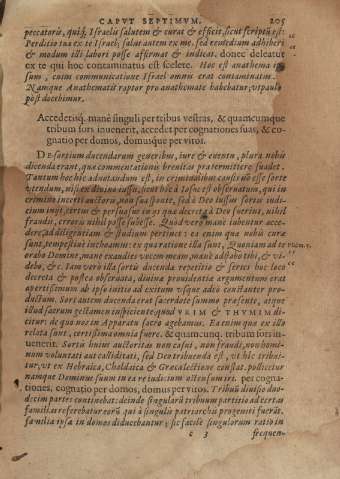 CAPVT SEPTIMVM. 205
peccatoris, quiq́; Israelis salutem & curat & efficit, sicut scriptũ est:
Perditio tua ex te Israel, salus autem ex me. sed remedium adhiberi
& modum illi labori posse affirmat & indicat, donec deleatur
ex te qui hoc contaminatus est scelere. Hoc est anathema ip
sum, cuius communicatione Israel omnis erat contaminatus.
Namque Anathematis raptor pro anathemate habebatur, vt paulò
post docebimur.
Accedetisq́. manè singuli per tribus vestras, & quamcumque
tribum sors inuenerit, accedet per cognationes suas, & co-
gnatio per domos, domusque per viros.
De sortium ducendarum generibus, iure & euentu, plura nobis
dicenda erant, quæ commentationis breuitas prætermittere suadet.
Tantum hoc hîc adnotandum est, in criminibus causis nõ esse sorte
vtendum, nisi ex diuino iussu, sicut hîc à Iosue est obseruatum, qui in
crimine incerti auctoris, non sua sponte, sed à Deo iussus sortis indi-
cium inijt, certus & persuasus in ijs quæ decreta à Deo fuerint, nihil
fraudis, erroris nihil posse subesse. Quod verò mane iubentur acce-
dere, ad diligentiam & studium pertinet: ea enim quæ nobis curæ
sunt, tempestiuè inchoamus: ex qua ratione illa sunt, Quoniam ad te
orabo Domine, mane exaudies vocem meam, mane adstabo tibi, & vi-
debo, &c. Iam verò illa sortis ducenda repetitio & series hoc loco
decreta & postea obseruata, diuinæ prouidentiæ argumentum erat
apertissimum ab ipso initio ad exitum vsque adeò constanter pro-
ductum. Sors autem ducenda erat sacerdote summo præsente, atque
illud sacrum gestamen inspiciente, quod VRIM & THVMIM di-
citur: de quo nos in Apparatu sacro agebamus. Eatenim quæ ex illo
relata sunt, certissima omnia fuere. & quamcunq́. tribum sors in-
uenerit. Sortis huius auctoritas non casui, non fraudi, non homi-
num voluntati aut calliditati, sed Deo tribuenda est, vt hîc tribui-
tur, vt ex Hebraica, Chaldaica & Græca lectione constat. pollicetur
namque Dominus suum in ea re iudicium ostensum iri. per cogna-
tiones, cognatio per domos, domus per viros. Tribuũ diuisio duo-
decim partes continebat: deinde singularũ tribuum partitio ad certas
familias referebatur eorũ qui à singulis patriarchis progeniti fuerũt.
familia ipsa in domos diducebantur, & sic facilè singulorum ratio in
c 3 sequen-